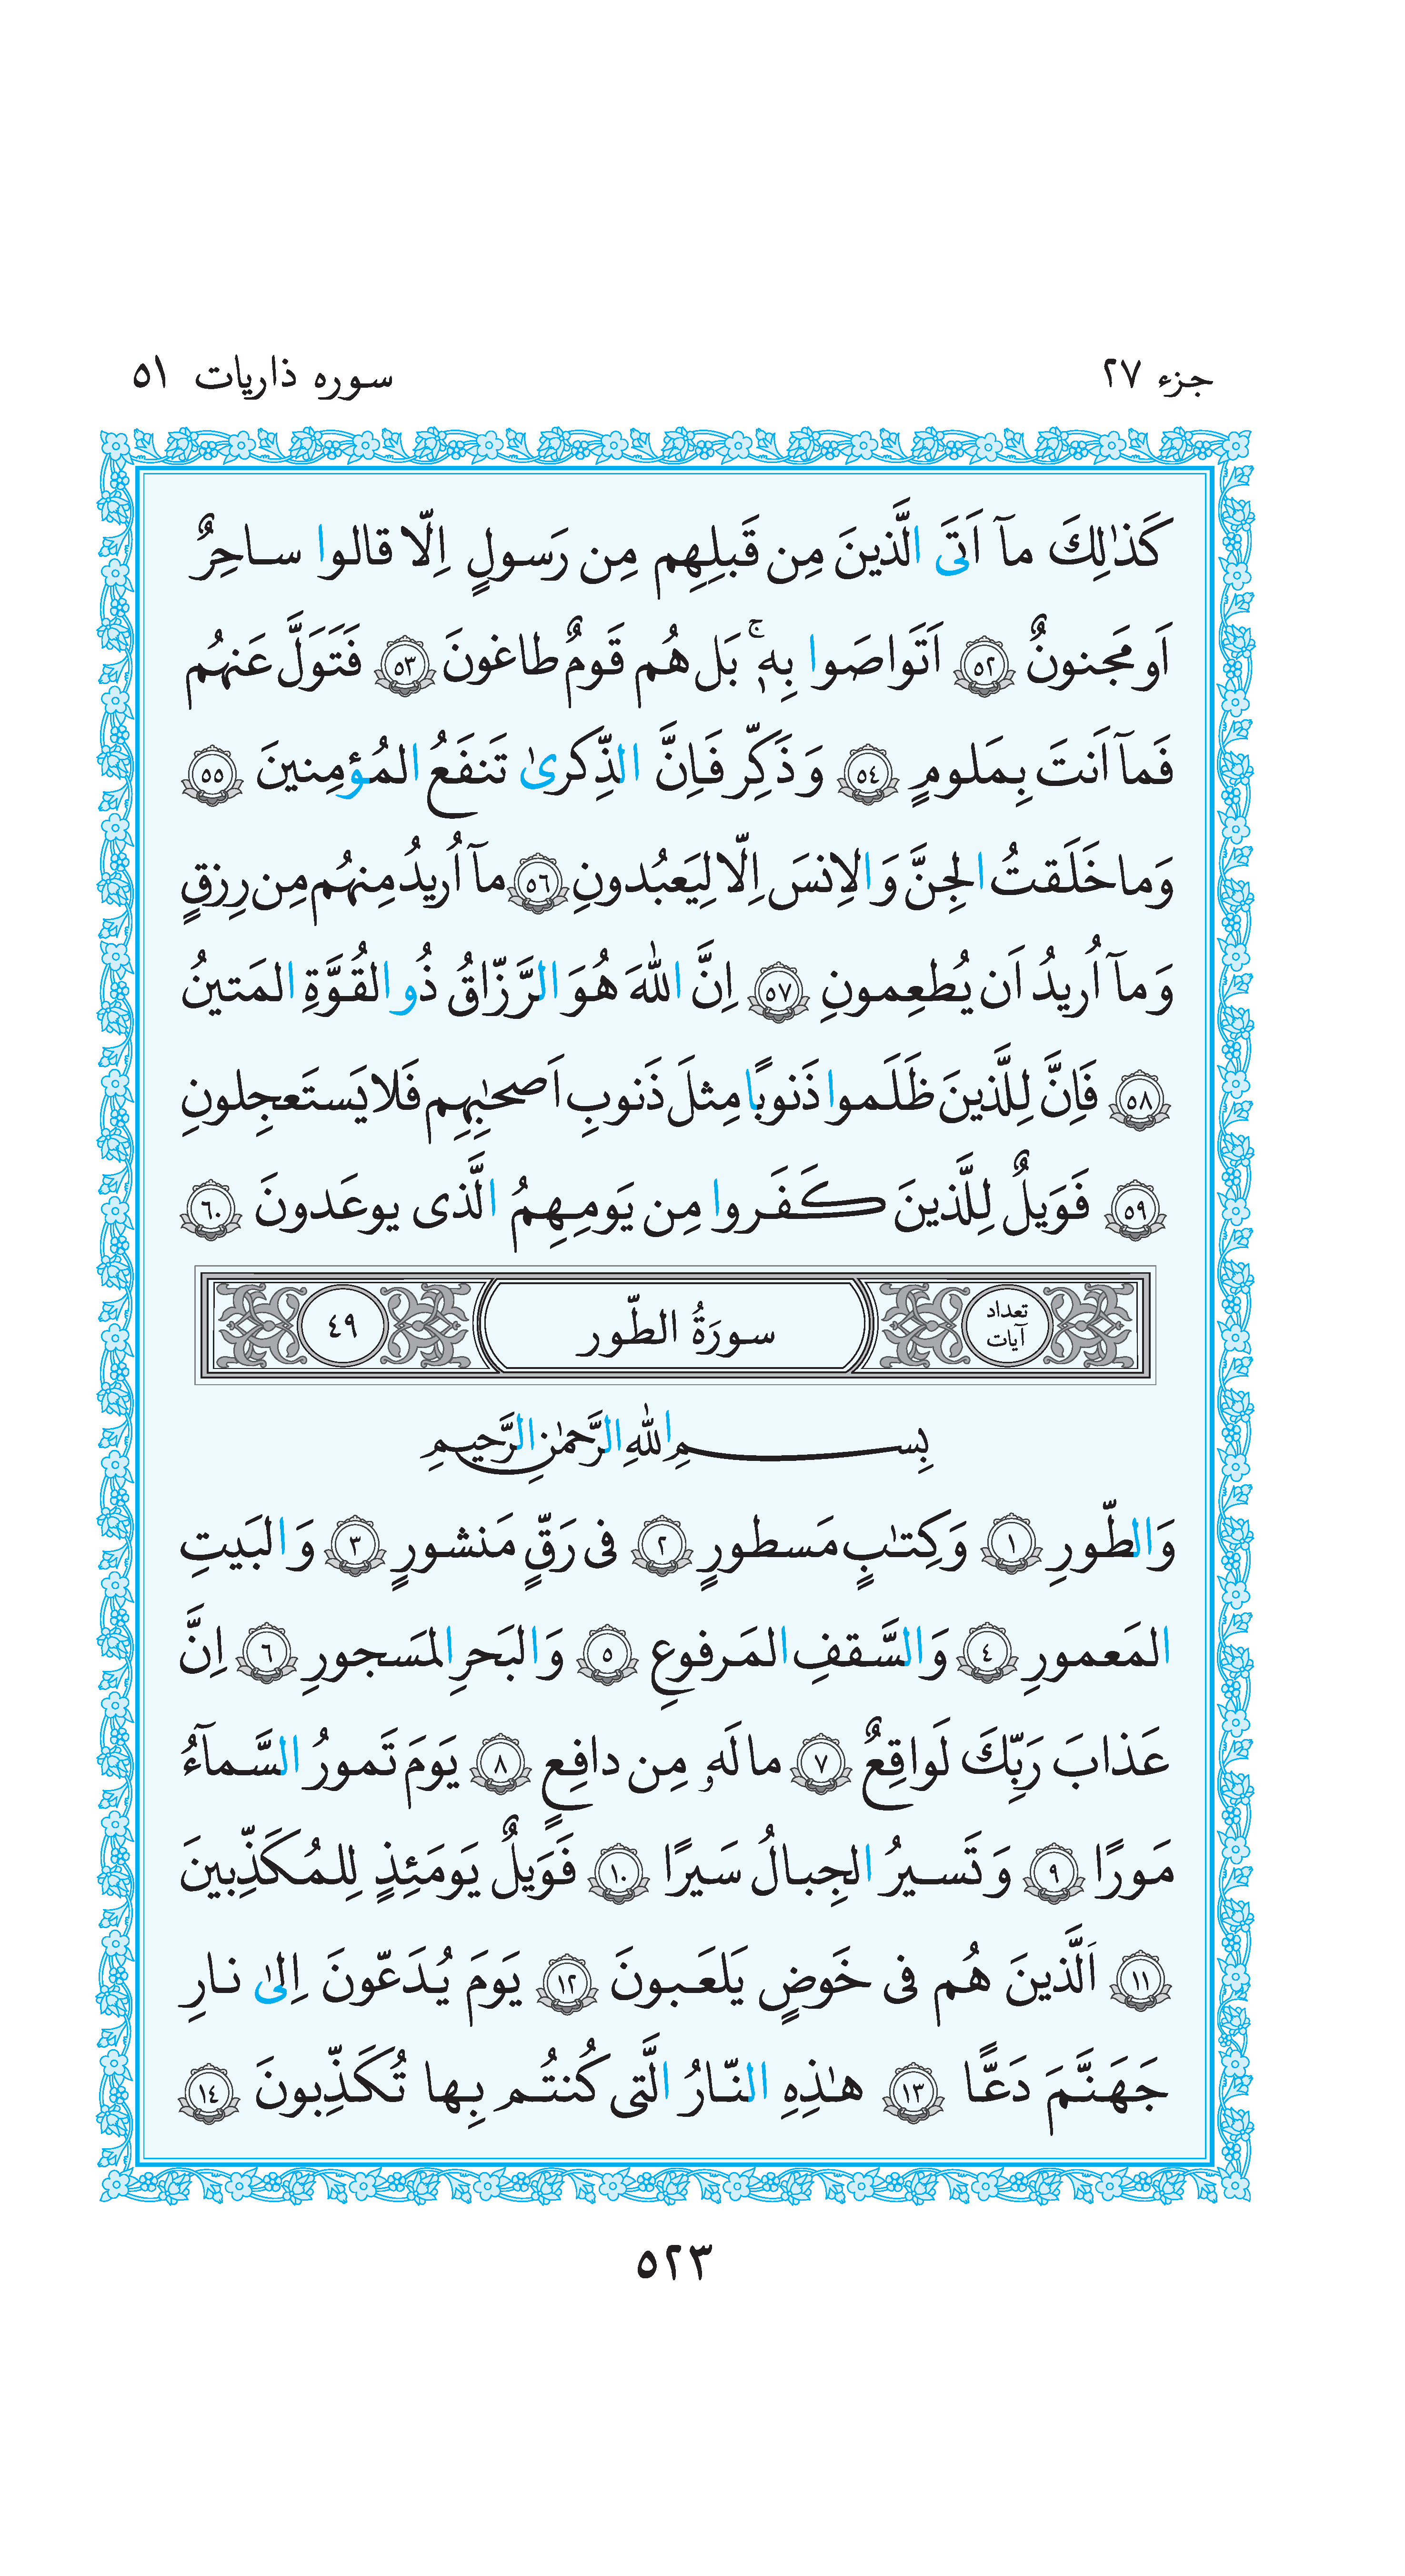 جزء ٢٧
سوره ذاریات ٥١
كَذٰلِكَ مآ اَتَى الَّذينَ مِن قَبلِهِم مِن رَسولٍ اِلّا قالوا ساحِرٌ
اَو مَجنونٌ ٥٢ اَتَواصَوا بِهٖ ۚ بَل هُم قَومٌ طاغونَ ٥٣ فَتَوَلَّ عَنهُم
فَمآ اَنتَ بِمَلومٍ ٥٤ وَ ذَكِّر فَاِنَّ الذِّكرىٰ تَنفَعُ المُؤمِنينَ ٥٥
وَما خَلَقتُ الجِنَّ وَ الاِنسَ اِلّا لِيَعبُدونِ ٥٦ مآ اُريدُ مِنهُم مِن رِزقٍ
وَ مآ اُريدُ اَن يُطعِمونِ ٥٧ اِنَّ اللّٰهَ هُوَ الرَّزّاقُ ذُو القُوَّةِ المَتينُ
٥٨ فَاِنَّ لِلَّذينَ ظَلَموا ذَنوبًا مِثلَ ذَنوبِ اَصحٰبِهِم فَلا يَستَعجِلونِ
٥٩ فَوَيلٌ لِلَّذينَ كَفَروا مِن يَومِهِمُ الَّذى يوعَدونَ ٦٠
تعداد آیات
سورَةُ الطّور
٤٩
بِسمِ اللّٰهِ الرَّحمٰنِ الرَّحيمِ
وَالطّورِ ١ وَكِتٰبٍ مَسطورٍ ٢ فى رَقٍّ مَنشورٍ ٣ وَ البَيتِ
المَعمورِ ٤ وَالسَّقفِ المَرفوعِ ٥ وَ البَحرِ المَسجورِ ٦ اِنَّ
عَذابَ رَبِّكَ لَواقِعٌ ٧ ما لَهٗ مِن دافِعٍ ٨ يَومَ تَمورُ السَّمآءُ
مَورًا ٩ وَ تَسيرُ الجِبالُ سَيرًا ١٠ فَوَيلٌ يَومَئِذٍ لِلمُكَذِّبينَ
١١ اَلَّذينَ هُم فى خَوضٍ يَلعَبونَ ١٢ يَومَ يُدَعّونَ اِلىٰ نارِ
جَهَنَّمَ دَعًّا ١٣ هٰذِهِ النّارُ الَّتى كُنتُم بِها تُكَذِّبونَ ١٤
٥٢٣